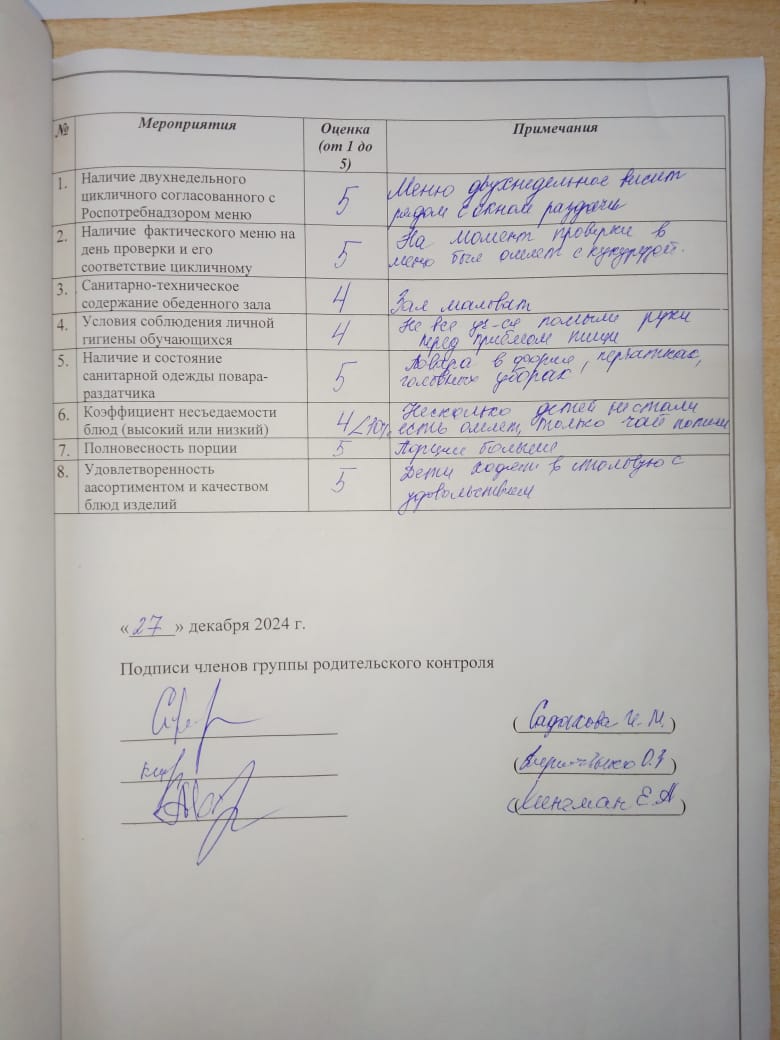 № Мероприятия Оценка (от 1 до 5) Примечания
1. Наличие двухнедельного
цикличного согласованного с
Роспотребнадзором меню
5
Меню двухнедельное висит
рядом с окном раздачи
2. Наличие фактического меню на
день проверки и его
соответствие цикличному
5
На момент проверки в
меню был омлет с кукурузой.
3. Санитарно-техническое
содержание обеденного зала
4
Зал маловат
4. Условия соблюдения личной
гигиены обучающихся
4
Не все уч-ся помыли руки
перед приёмом пищи
5. Наличие и состояние
санитарной одежды повара-
раздатчика
5
Повара в форме, перчатках,
головных уборах
6. Коэффициент несъедаемости
блюд (высокий или низкий)
4
Несколько детей не стали
есть омлет, только чай попили
7. Полновесность порции
5
Порции большие
8. Удовлетворенность
аасортиментом и качеством
блюд изделий
5
Дети ходят в столовую с
удовольствием
«27» декабря 2024 г.
Подписи членов группы родительского контроля
(Садыкова И. М.)
О.
Е. А